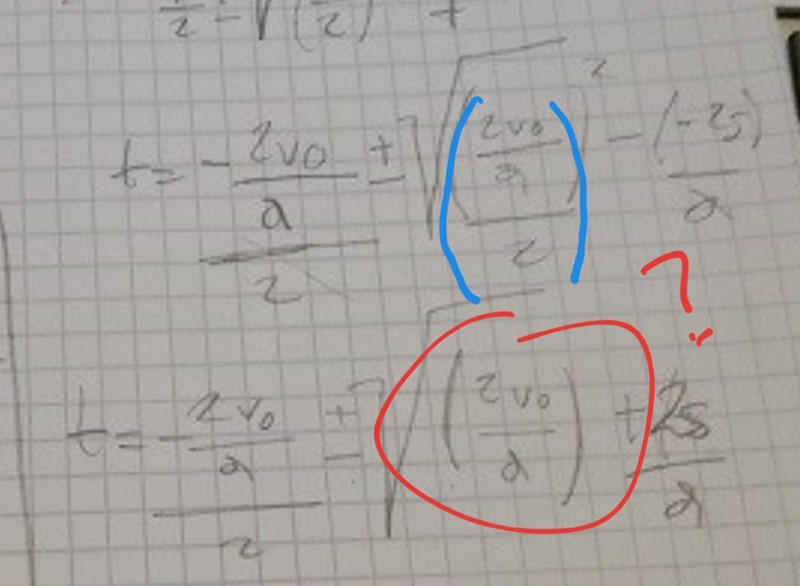 1/2 ± √(1/2)² +
t = -(2v₀/a)/2 ± √(((2v₀/a)/2)² - (-2s)/a)
?
t = -(2v₀/a)/2 ± √((2v₀/a) + 2s/a)